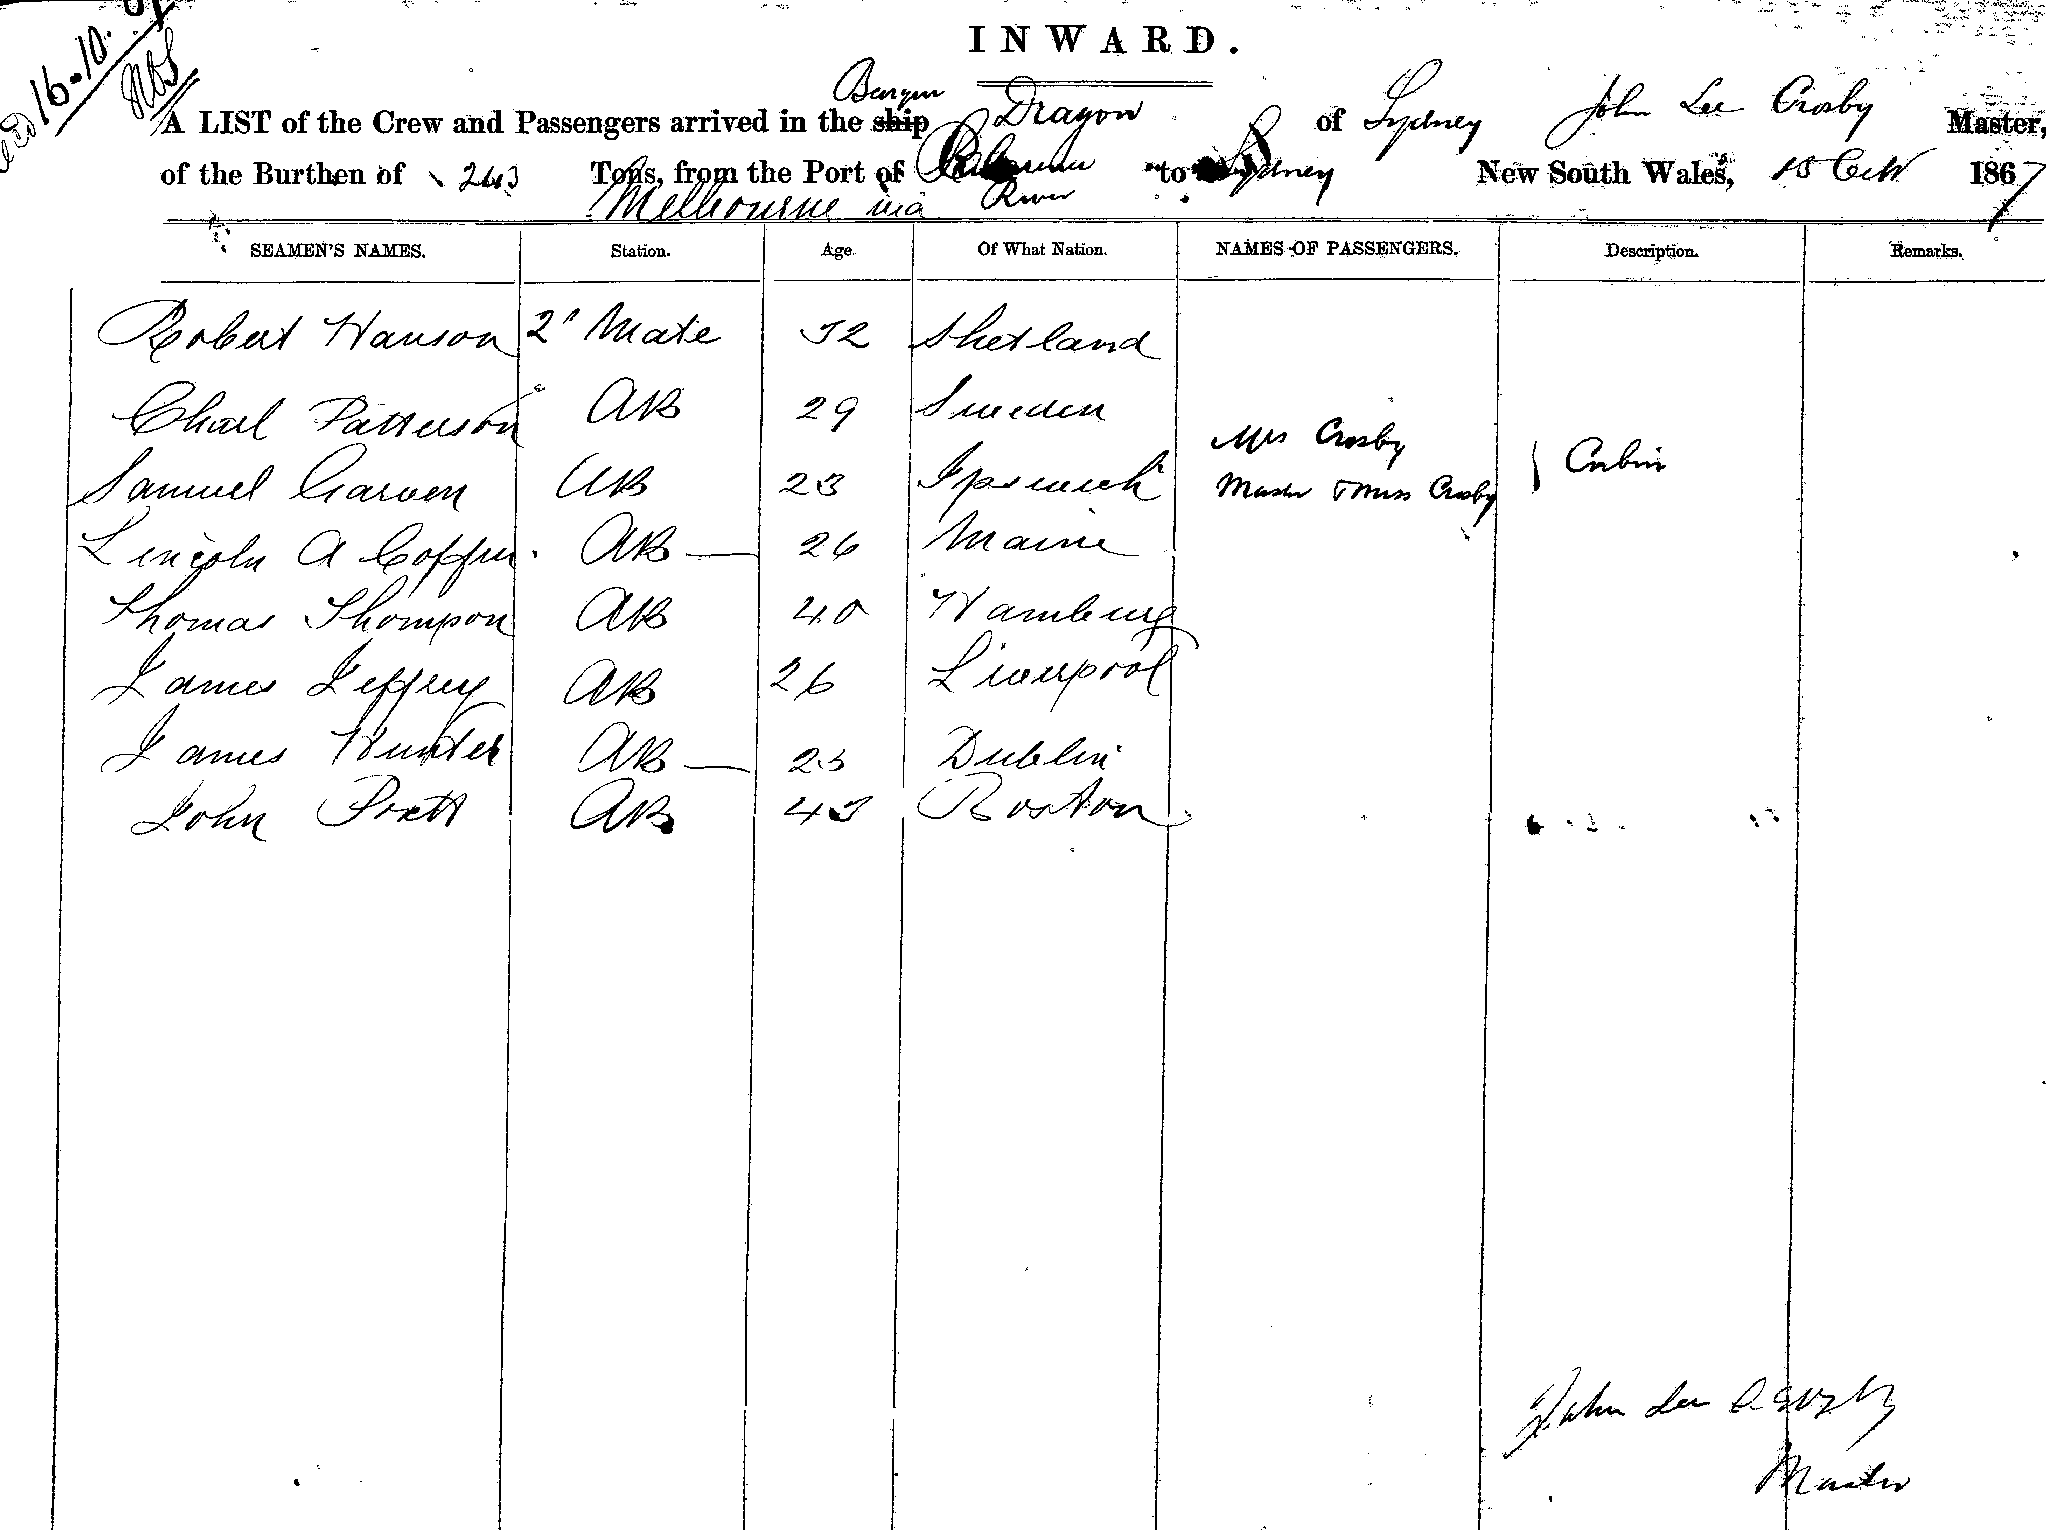 16.10.67
INWARD.
Dragon
A LIST of the Crew and Passengers arrived in the ship of Sydney John Lee Crosby Master,
of the Burthen of 243 Tons, from the Port of to Sydney New South Wales, 15 Oct 1867
Melbourne via River
SEAMEN'S NAMES. Station. Age Of What Nation. NAMES OF PASSENGERS. Description. Remarks.
Robert Hanson 2" Mate 52 Shetland
Charl Patterson AB 29 Sweden
Mrs Crosby
Samuel Garven AB 23 Ipswich Master & Miss Crosby } Cabin
Lincoln A Coffin AB — 26 Maine
Thomas Thompson AB 40 Hamburg
James Jeffrey AB 26 Liverpool
James Hunter AB — 25 Dublin
John Pratt AB 43 Boston
John Lee Crosby
Master